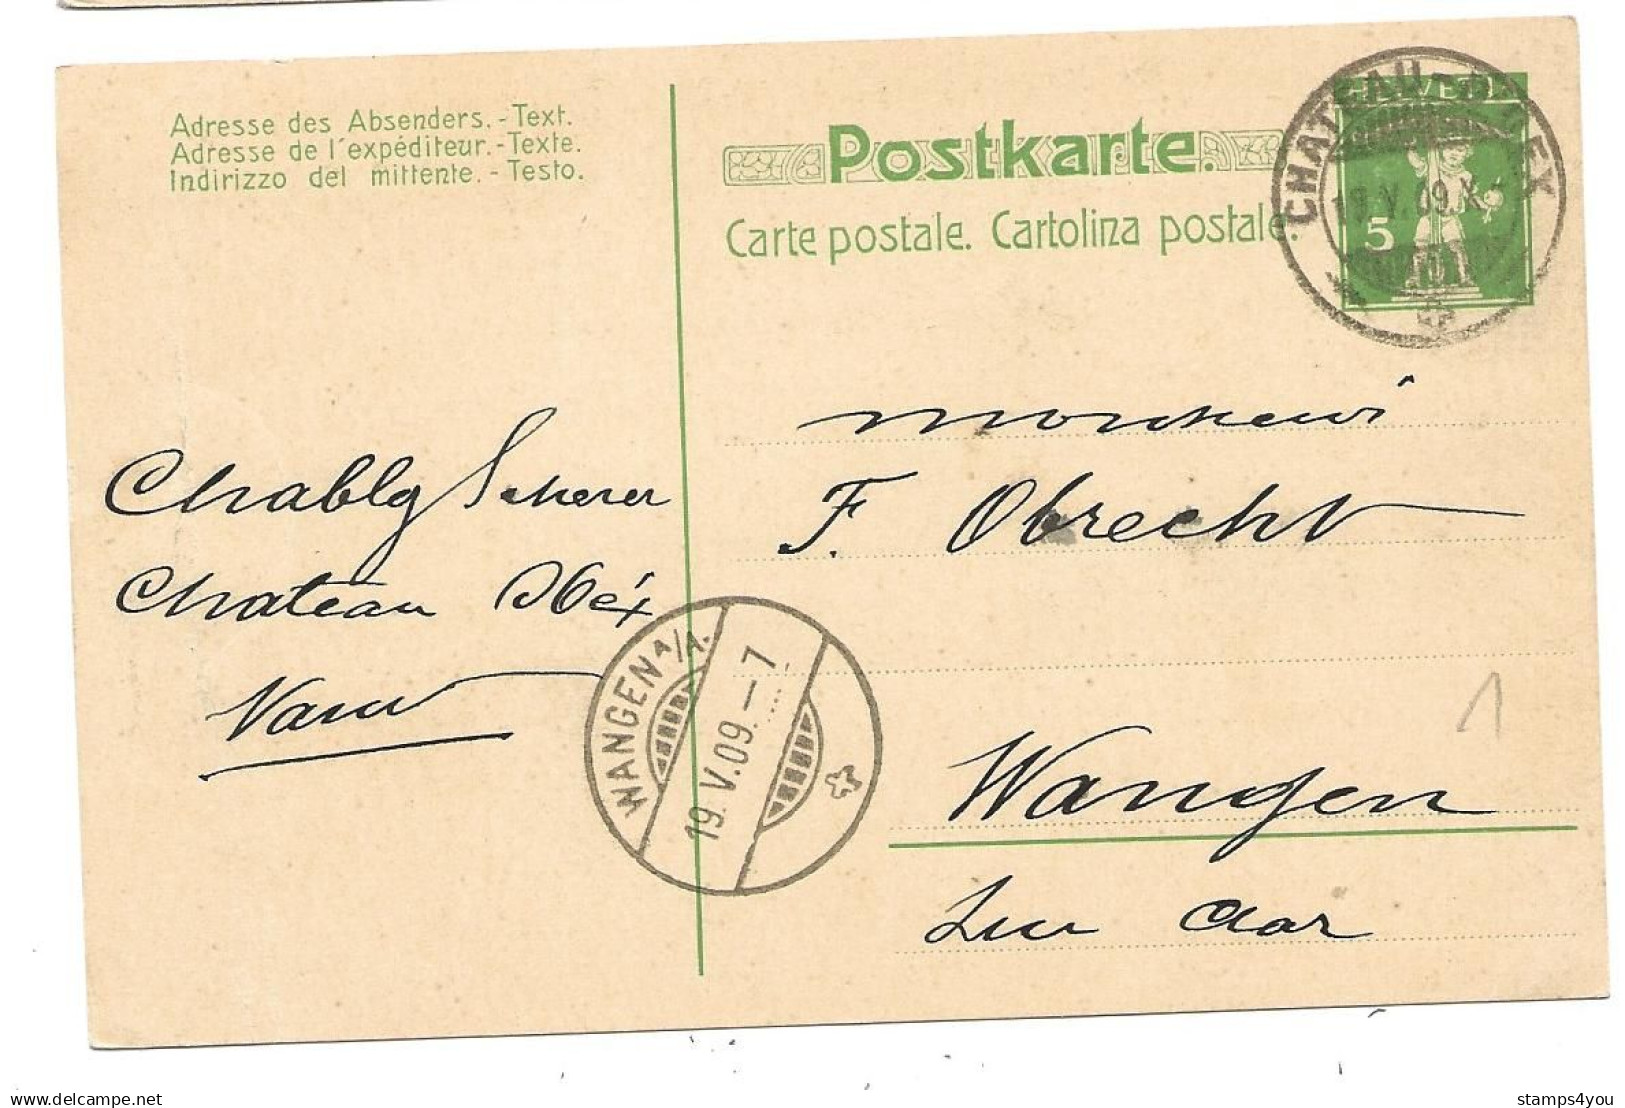 Adresse des Absenders. - Text.
Adresse de l'expéditeur. - Texte.
Indirizzo del mittente. - Testo.
Postkarte.
Carte postale. Cartolina postale.
HELVETIA
5
CHATEAU-D'OEX
18.V.09.X
Monsieur
F. Obrecht
Wangen
Aar
Chabloz Scherer
Chateau d'Oéx
Vaud
WANGEN a/A.
19.V.09.-7
1
delcampe.net
stamps4you